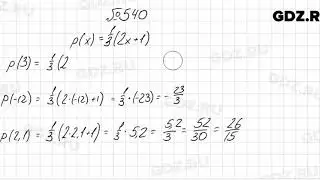 GDZ.R
№540
p(x) = 1/3 (2x+1)
p(3) = 1/3 (2
p(-12) = 1/3 (2·(-12)+1) = 1/3 · (-23) = - 23/3
p(2,1) = 1/3 (2·2,1+1) = 1/3 · 5,2 = 5,2/3 = 52/30 = 26/15